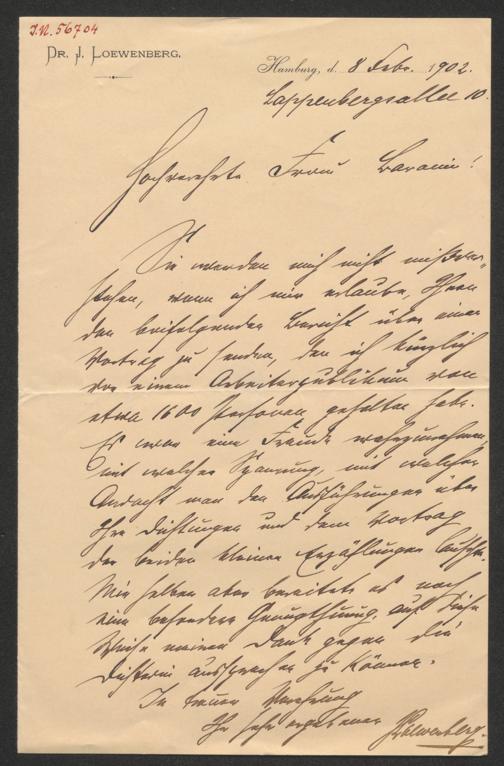 I.N. 56704
DR. J. LOEWENBERG.
Hamburg, d. 8 Febr. 1902.
Lappenbergsallee 10.
Hochverehrte Frau Baronin!
Sie werden mich nicht mißver-
stehen, wenn ich mir erlaube, Ihnen
den beifolgenden Bericht über einen
Vortrag zu senden, den ich kürzlich
vor einem Arbeiterpublikum von
etwa 1600 Personen gehalten habe.
Es war eine Freude wahrzunehmen,
mit welcher Spannung, mit welcher
Andacht man den Ausführungen über
Ihre Dichtungen und dem Vortrag
der beiden kleinen Erzählungen lauschte.
Mir selber aber bereitete es noch
eine besondere Genugthuung, auf diese
Weise meinen Dank gegen die
Dichterin aussprechen zu können.
In treuer Verehrung
Ihr sehr ergebener
JLoewenberg.